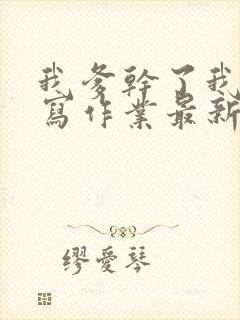 我爹幹了我
寫作業最新
繆愛琴